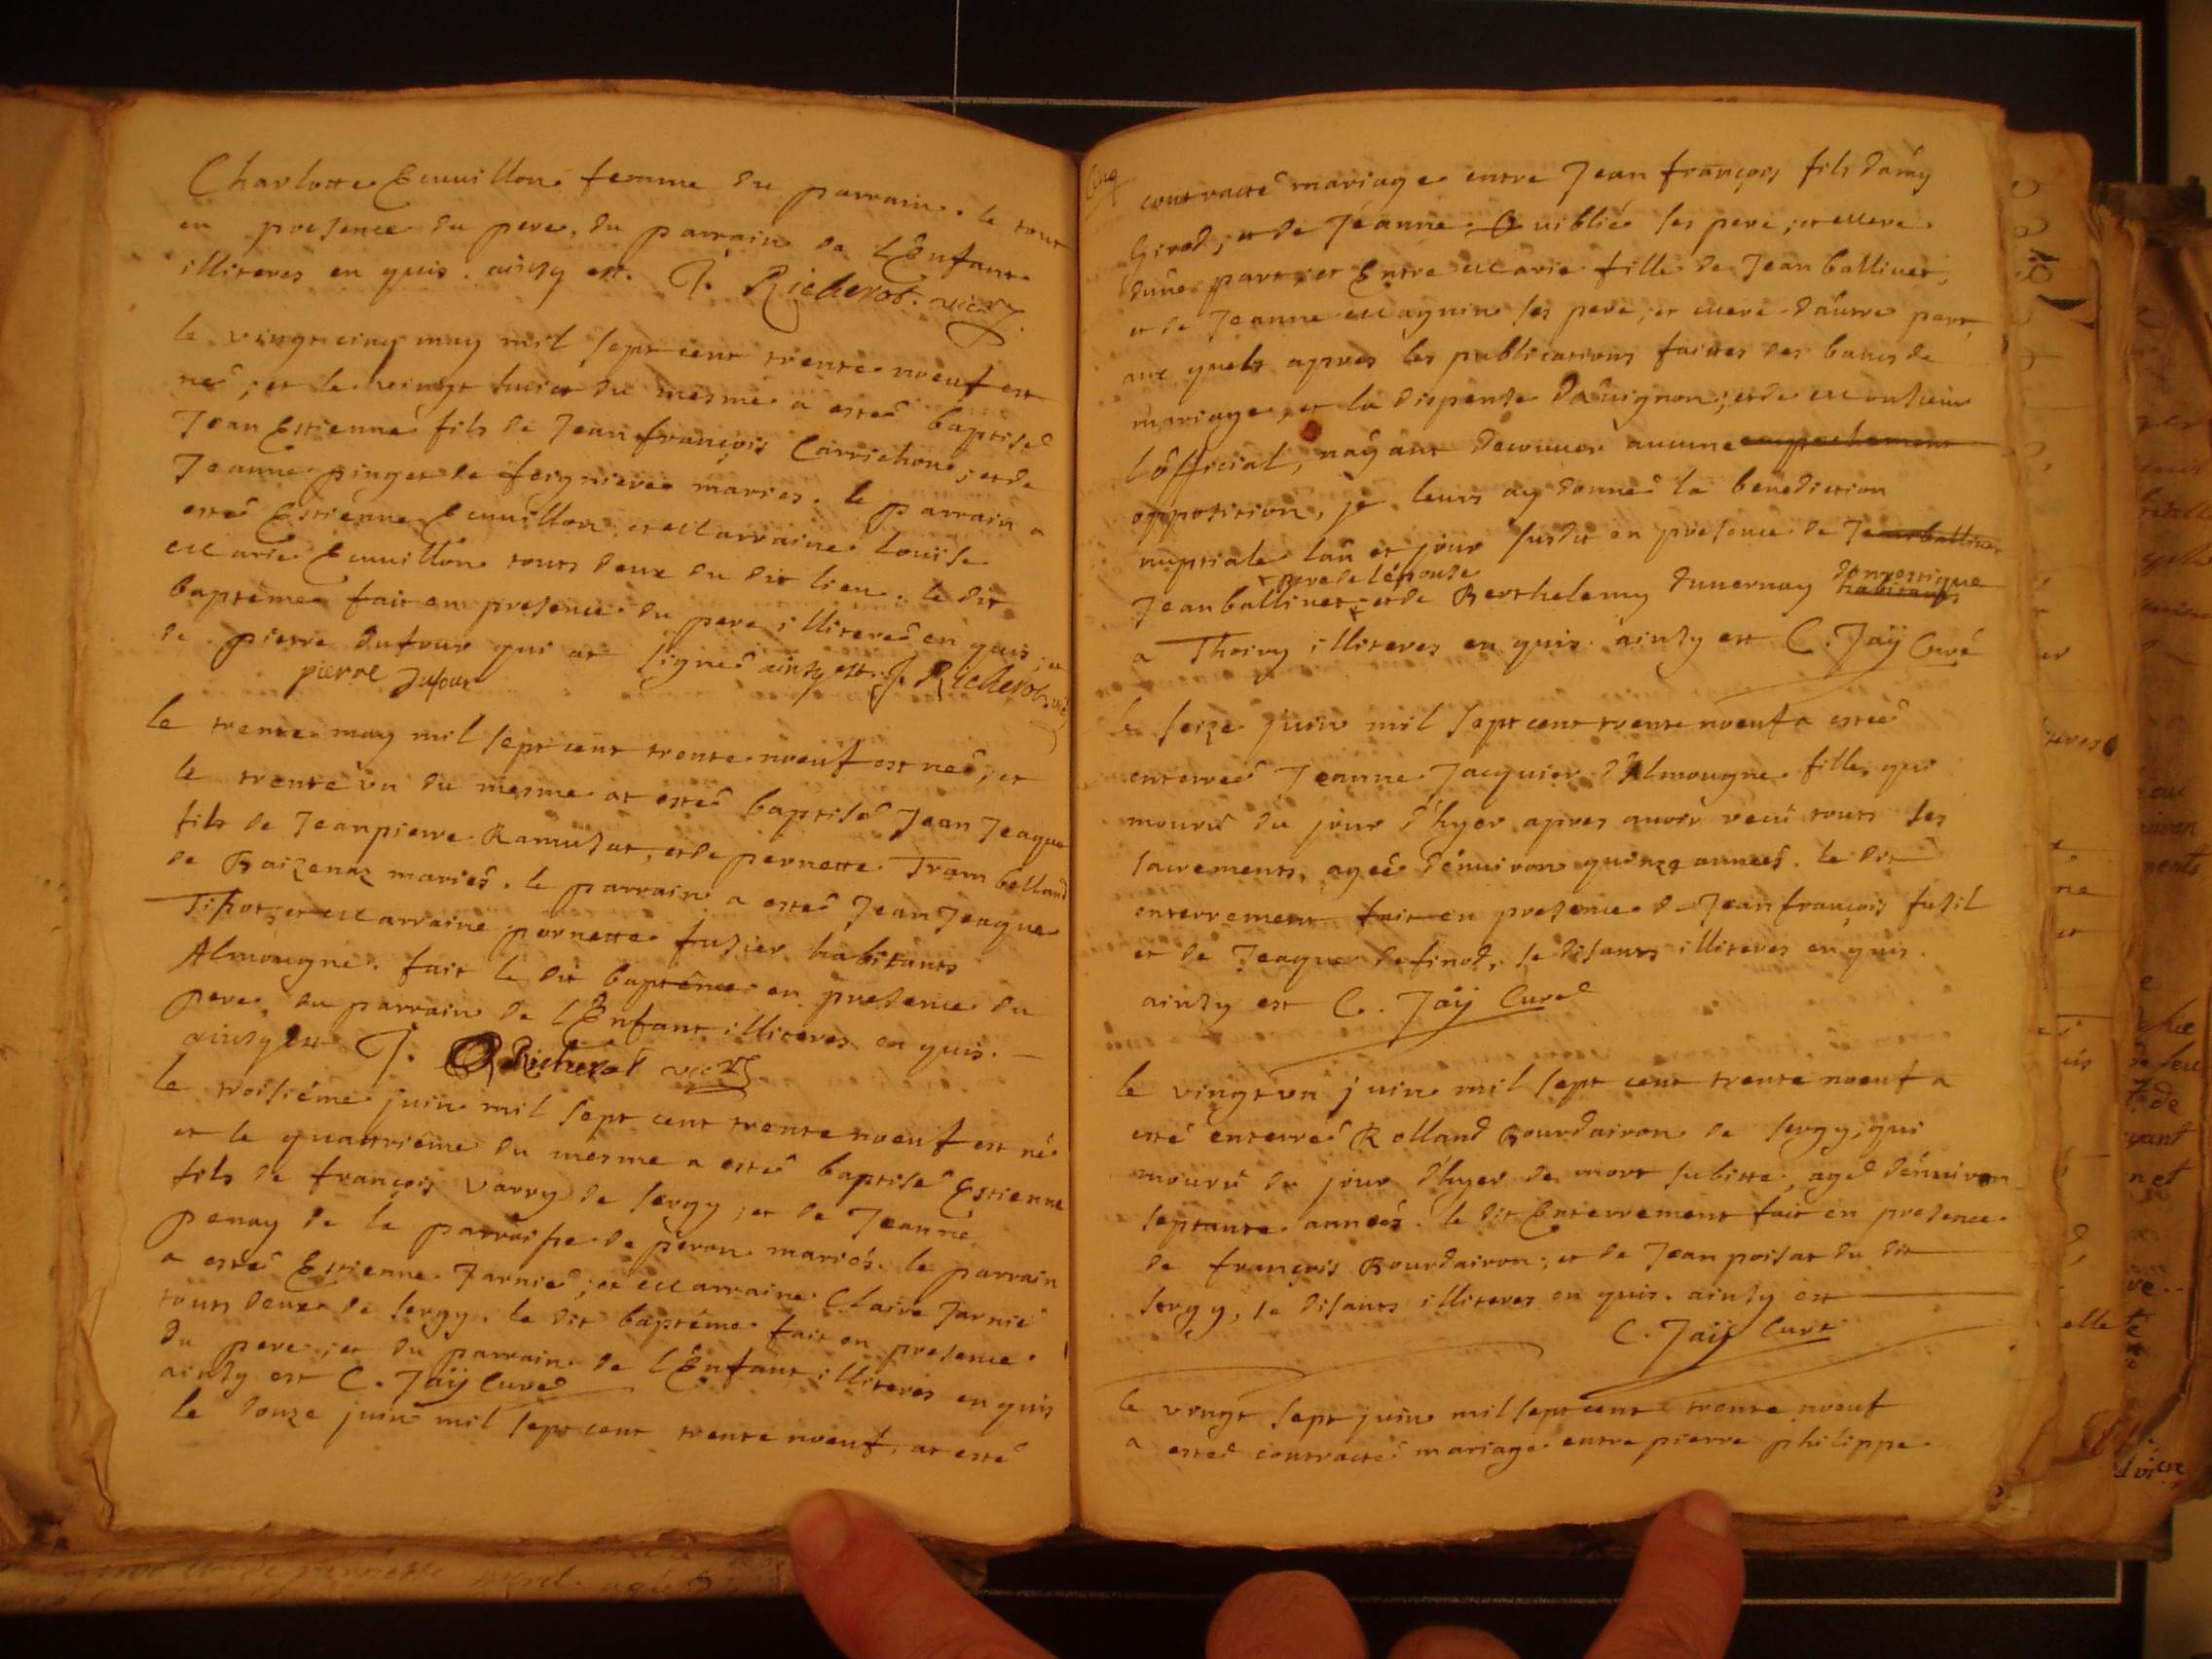 Charlotte Emuillon femme du parrain. le tout
en presence du pere, du parrain de l'Enfant
illiteres en quis. ainsy est. J. Richerot. vicr
le vingt cinq may mil sept cent trente noeuf est
né; et le vingt huict du mesme a esté baptisé
Jean Estienne fils de Jean françois Carrichon; et de
Jeanne pinget de feigniere mariés. le parrain a
esté Estienne Emuillon; et Marraine Louise
Marie Emuillon touts deux du dit lieu. le dit
baptême fait en presence du pere illiteré en quis; et
de pierre dufour qui at signé ainsy est. J. Richerot vic
pierre Dufour
le trente may mil sept cent trente noeuf est né; et
le trente un du mesme at esté baptisé Jean Jeaque
fils de Jean pierre Ramusat, et de pernette Tramboelland
de Baizenaz mariés. le parrain a esté Jean Jeaque
Tissot, et Marraine pernette fusier habitants
Almougne. fait le dit baptême en presence du
pere, du parrain de l'Enfant illiteres en quis.
ainsy est J. Richerot vicr
le troisiéme juin mil sept cent trente noeuf est né
et le quattriême du mesme a esté baptisé Estienne
fils de françois varry de sergy; et de Jeanne
penay de la parroisse de peron mariés. le parrain
a esté Estienne Jarnié; et Marraine Claire Jarnié
touts deux de sergy. le dit baptême fait en presence
du pere; et du parrain de l'Enfant illiteres en quis
ainsy est C. Jaÿ Curé
le douze juin mil sept cent trente noeuf, at esté
contracté mariage entre Jean françois fils damy
Girod; et de Jeanne Quiblié ses pere; et mere
dune part; et Entre Marie fille de Jean balliuet;
et de Jeanne Magnin ses pere; et mere dáutre part,
aux quels apres les publications faittes des bancs de
mariage, et la dispense Dauignon; et de Monsieur
lôfficial, nayant decouuer aucune empechement
opposition, je leurs ay donné la benediction
nuptiale lan et jour susdit en presence de Jean balliuet
pere de lépouse
Jean balliuet; et de Berthelemy dunernay domestique
habitants
a Thoiry illiteres en quis. ainsy est C. Jaÿ Curé
le seize juin mil sept cent trente noeuf a estée
enterrée Jeanne Jacquier d'Almougne fille, qui
mouru du jour d'hyer apres auoir receu touts les
sacrements, agée dénuiron quinze années. le dit
enterrement fait en presence de Jean françois fusil
et de Jeaque definod, se disants illiteres en quis.
ainsy est C. Jaÿ Curé
le vingt un juin mil sept cent trente noeuf a
esté enterré Rolland Bourdairon de sergy, qui
mouru du jour d'hyer de mort subitte, agé dénuiron
septante années. le dit Enterrement fait en presence
de françois Bourdairon; et de Jean poisat du dit
sergy, se disants illiteres en quis. ainsy est
C. Jaÿ Curé
le vingt sept juin mil sept cent trente noeuf
a esté contracté mariage entre pierre philippe